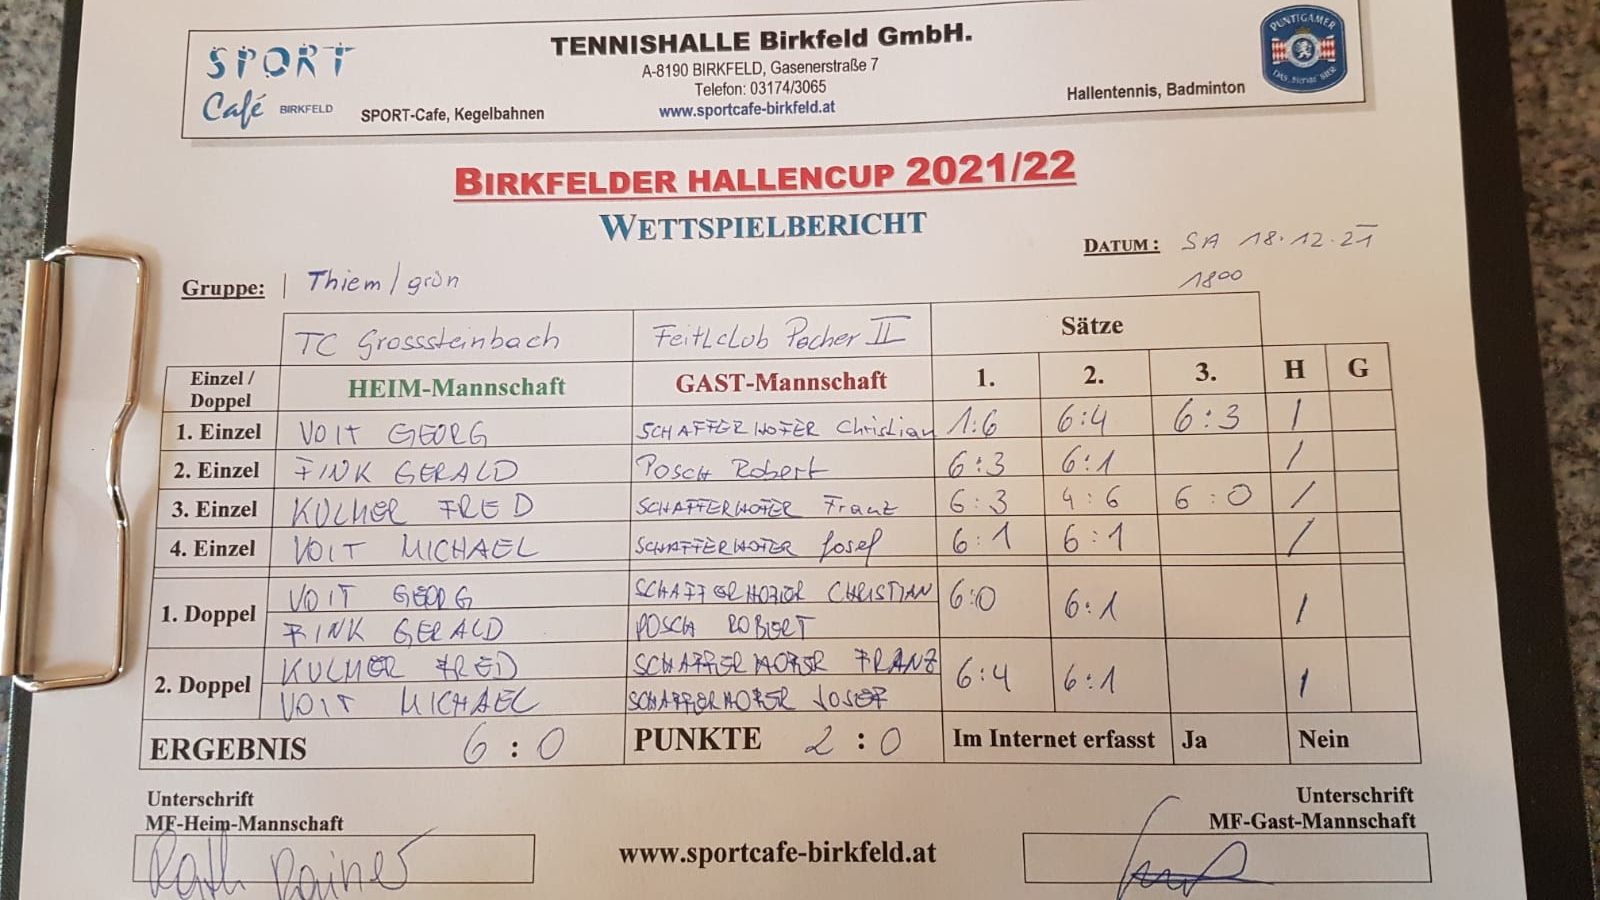 SPORT
Café BIRKFELD
SPORT-Cafe, Kegelbahnen
TENNISHALLE Birkfeld GmbH.
A-8190 BIRKFELD, Gasenerstraße 7
Telefon: 03174/3065
www.sportcafe-birkfeld.at
Hallentennis, Badminton
PUNTIGAMER
DAS "bierige" BIER
BIRKFELDER HALLENCUP 2021/22
WETTSPIELBERICHT
DATUM: SA 18.12.21
1800
Gruppe: Thiem/grün
TC Grosssteinbach Feitlclub Pacher II Sätze
Einzel / Doppel HEIM-Mannschaft GAST-Mannschaft 1. 2. 3. H G
1. Einzel VOIT GEORG SCHAFFERHOFER Christian 1:6 6:4 6:3 /
2. Einzel FINK GERALD POSCH Robert 6:3 6:1 /
3. Einzel KULMER FRED SCHAFFERHOFER Franz 6:3 4:6 6:0 /
4. Einzel VOIT MICHAEL SCHAFFERHOFER Josef 6:1 6:1 /
1. Doppel VOIT GEORG SCHAFFERHOFER CHRISTIAN 6:0 6:1 /
FINK GERALD POSCH ROBERT
2. Doppel KULMER FRED SCHAFFERHOFER FRANZ 6:4 6:1 /
VOIT MICHAEL SCHAFFERHOFER JOSEF
ERGEBNIS 6:0 PUNKTE 2:0 Im Internet erfasst Ja Nein
Unterschrift
MF-Heim-Mannschaft
Rath Rainer
www.sportcafe-birkfeld.at
Unterschrift
MF-Gast-Mannschaft